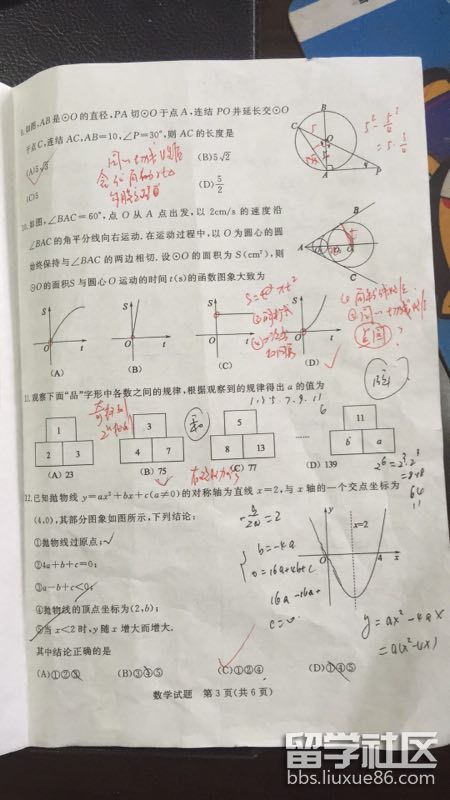 9.如图,AB是⊙O的直径,PA切⊙O于点A,连结PO并延长交⊙O
于点C,连结AC,AB=10,∠P=30°,则AC的长度是
(A)5√3
(B)5√2
(C)5
(D)5/2
B
C
O
A
P
5
10.如图,∠BAC=60°,点O从A点出发,以2cm/s的速度沿
∠BAC的角平分线向右运动.在运动过程中,以O为圆心的圆
始终保持与∠BAC的两边相切.设⊙O的面积为S(cm²),则
⊙O的面积S与圆心O运动的时间t(s)的函数图象大致为
B
A
C
S
O
t
(A)
S
O
t
(B)
S
O
t
(C)
S
O
t
(D)
11.观察下面“品”字形中各数之间的规律,根据观察到的规律得出a的值为
1,3,5,7,9,11
1
2 3
3
4 7
5
8 13
……
11
b a
(A) 23
(B) 75
(C) 77
(D) 139
12.已知抛物线y=ax²+bx+c(a≠0)的对称轴为直线x=2,与x轴的一个交点坐标为
(4,0),其部分图象如图所示,下列结论:
①抛物线过原点;
②4a+b+c=0;
③a-b+c<0;
④抛物线的顶点坐标为(2,b);
⑤当x<2时,y随x增大而增大.
其中结论正确的是
(A)①②③
(B)③④⑤
(C)①②④
(D)①④⑤
y
x=2
O
4
x
b=-4a
0=16a+4b+c
y=ax²-4ax
=a(x²-4x)
数学试题 第3页(共6页)
留学社区
bbs.liuxue86.com